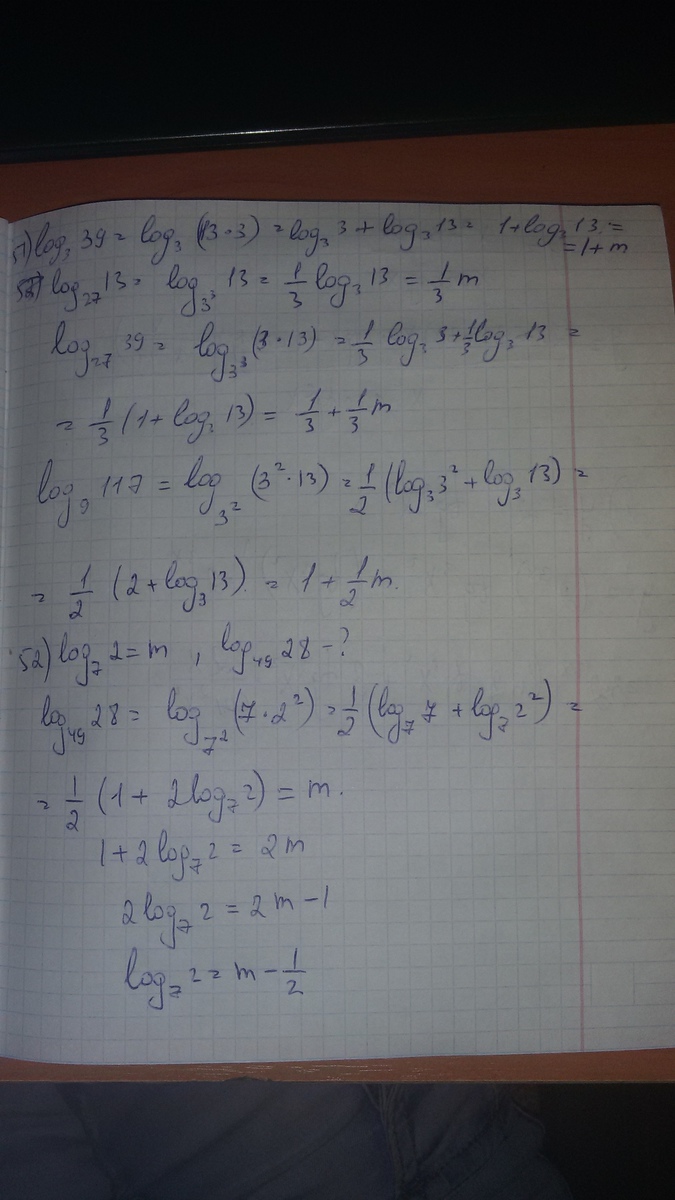 51) log₃ 39 = log₃ (13·3) = log₃ 3 + log₃ 13 = 1 + log₃ 13 =
= 1 + m
log₂₇ 13 = log₃³ 13 = 1/3 log₃ 13 = 1/3 m
log₂₇ 39 = log₃³ (3·13) = 1/3 log₃ 3 + 1/3 log₃ 13 =
= 1/3 (1 + log₃ 13) = 1/3 + 1/3 m
log₉ 117 = log₃² (3²·13) = 1/2 (log₃ 3² + log₃ 13) =
= 1/2 (2 + log₃ 13) = 1 + 1/2 m.
52) log₇ 2 = m , log₄₉ 28 - ?
log₄₉ 28 = log₇² (7·2²) = 1/2 (log₇ 7 + log₇ 2²) =
= 1/2 (1 + 2 log₇ 2) = m.
1 + 2 log₇ 2 = 2m
2 log₇ 2 = 2m - 1
log₇ 2 = m - 1/2